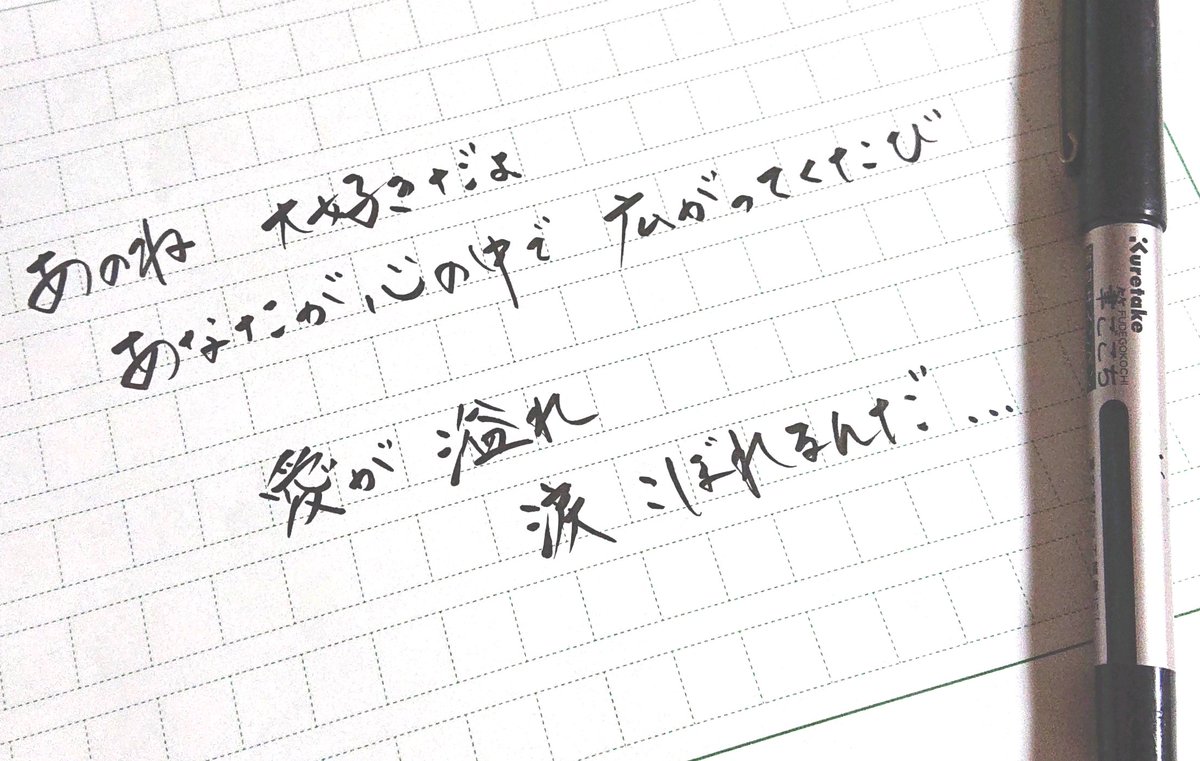 あのね 大好きだよ
あなたが心の中で 広がってくたび
愛が 溢れ
涙 こぼれるんだ…
Kuretake
筆ごこち
FUDEGOKOCHI